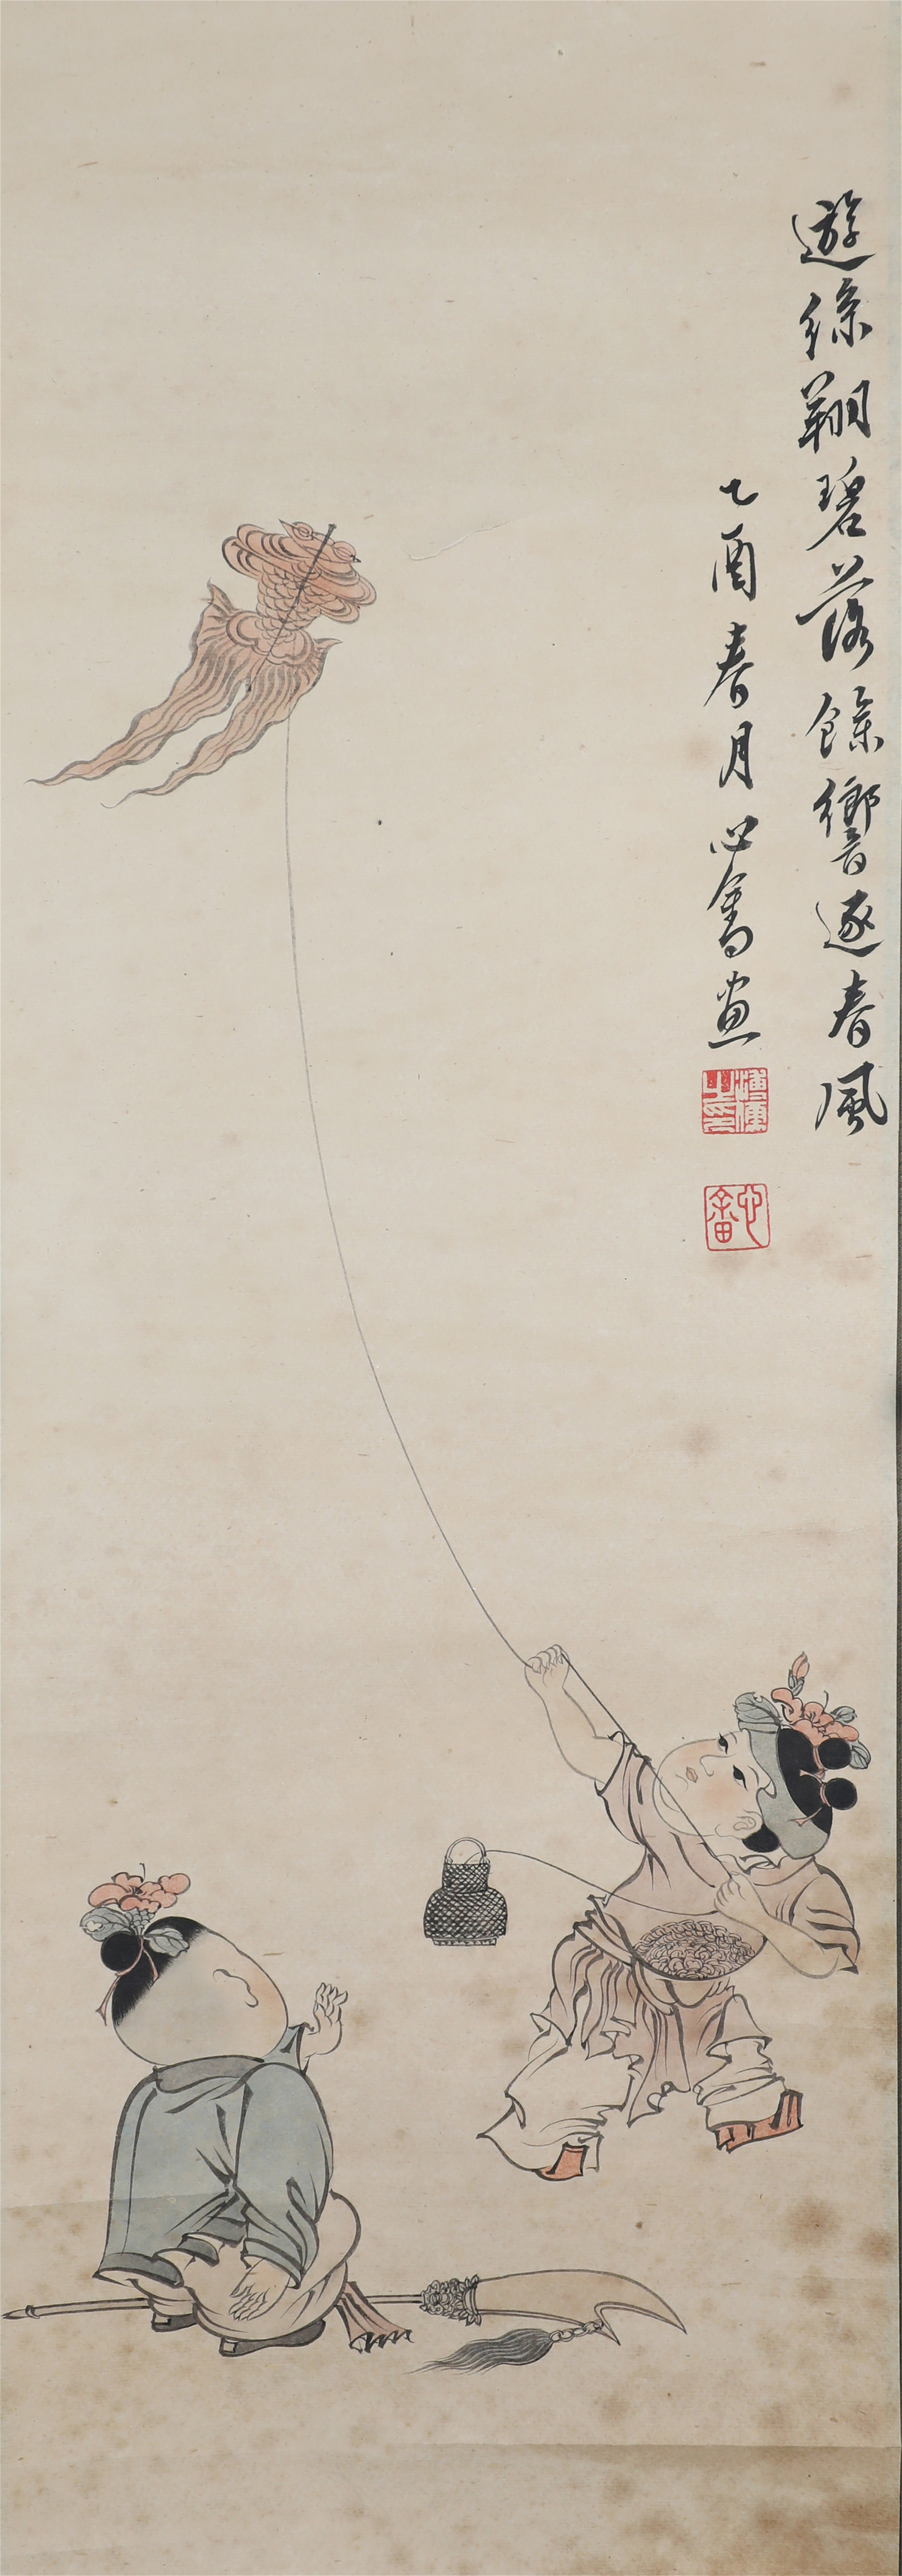 遊絲翔碧落餘響逐春風
乙酉春月心畬畫
溥儒之印
心畬